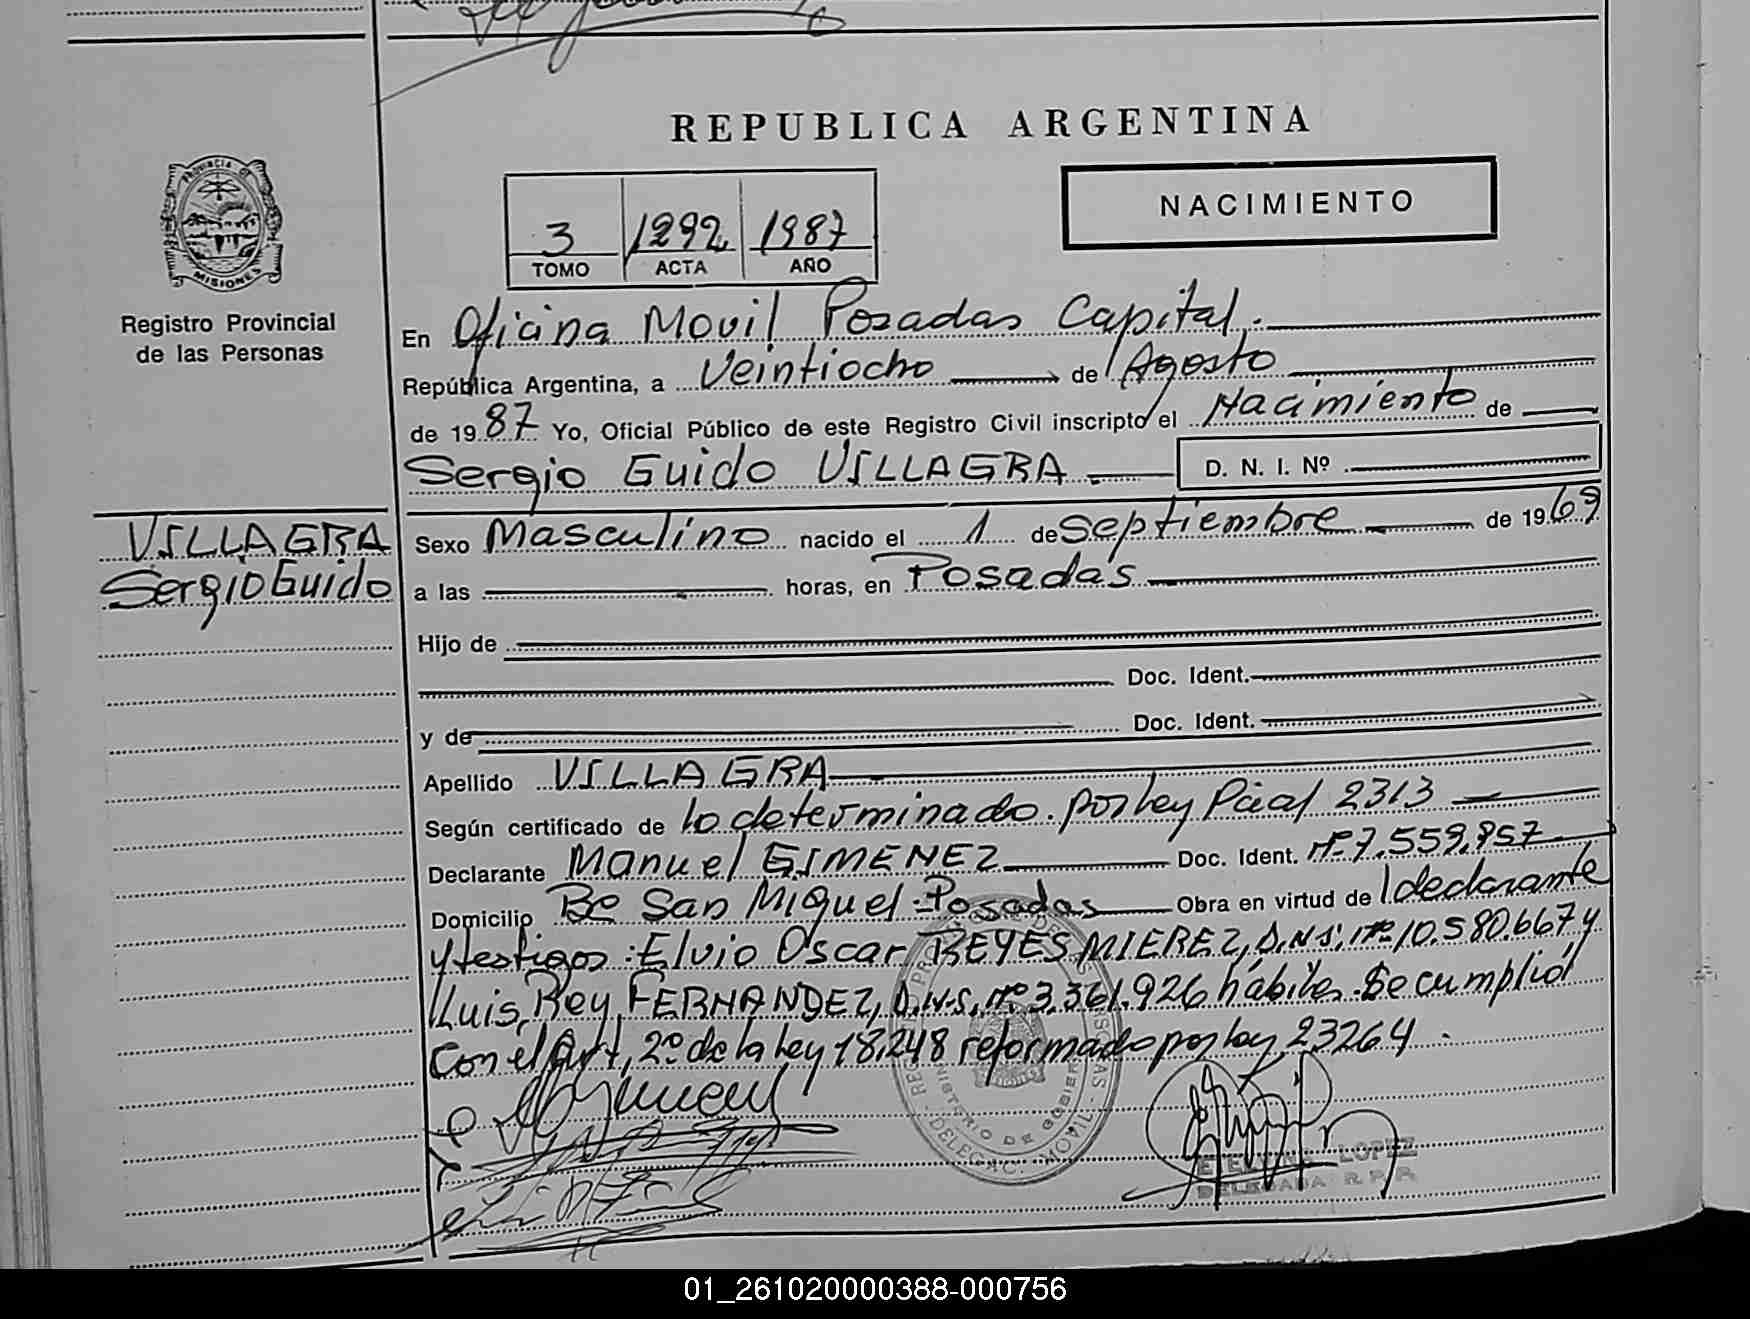 REPUBLICA ARGENTINA
PROVINCIA DE
MISIONES
Registro Provincial
de las Personas
3 1292 1987
TOMO ACTA AÑO
NACIMIENTO
En Oficina Movil Posadas Capital.
República Argentina, a Veintiocho de Agosto
de 1987 Yo, Oficial Público de este Registro Civil inscripto el Nacimiento de
Sergio Guido VILLAGRA D. N. I. Nº
VILLAGRA
Sergio Guido
Sexo Masculino nacido el 1 de Septiembre de 1969
a las horas, en Posadas
Hijo de
Doc. Ident.
y de Doc. Ident.
Apellido VILLAGRA
Según certificado de lo determinado por ley Pcial 2313
Declarante Manuel GIMENEZ Doc. Ident. Nº 7.559.957
Domicilio Bº San Miguel - Posadas Obra en virtud de declarante
y testigos: Elvio Oscar REYES MIEREZ, D.N.I. Nº 10.580.667 y
Luis Rey FERNANDEZ, D.N.I. Nº 3.361.926 hábiles. Se cumplió
con el Art. 2º de la Ley 18.248 reformado por ley 23264.
MINISTERIO DE GOBIERNO
DELEGAC. MOVIL
ETELVINA LOPEZ
DELEGADA R.P.P.
01_261020000388-000756